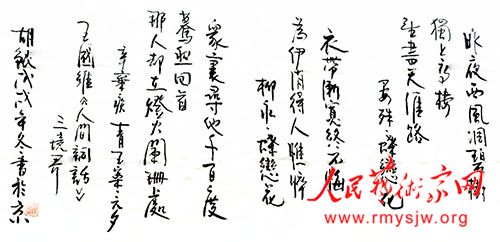 昨夜西風凋碧樹
獨上高樓
望盡天涯路
晏殊·蝶戀花
衣帶漸寬終不悔
為伊消得人憔悴
柳永·蝶戀花
眾裏尋他千百度
驀然回首
那人却在燈火闌珊處
辛棄疾青玉案·元夕
王國維《人間詞話》
三境界
胡 戊戌年冬書於京
人民藝術家网
www.rmysjw.org